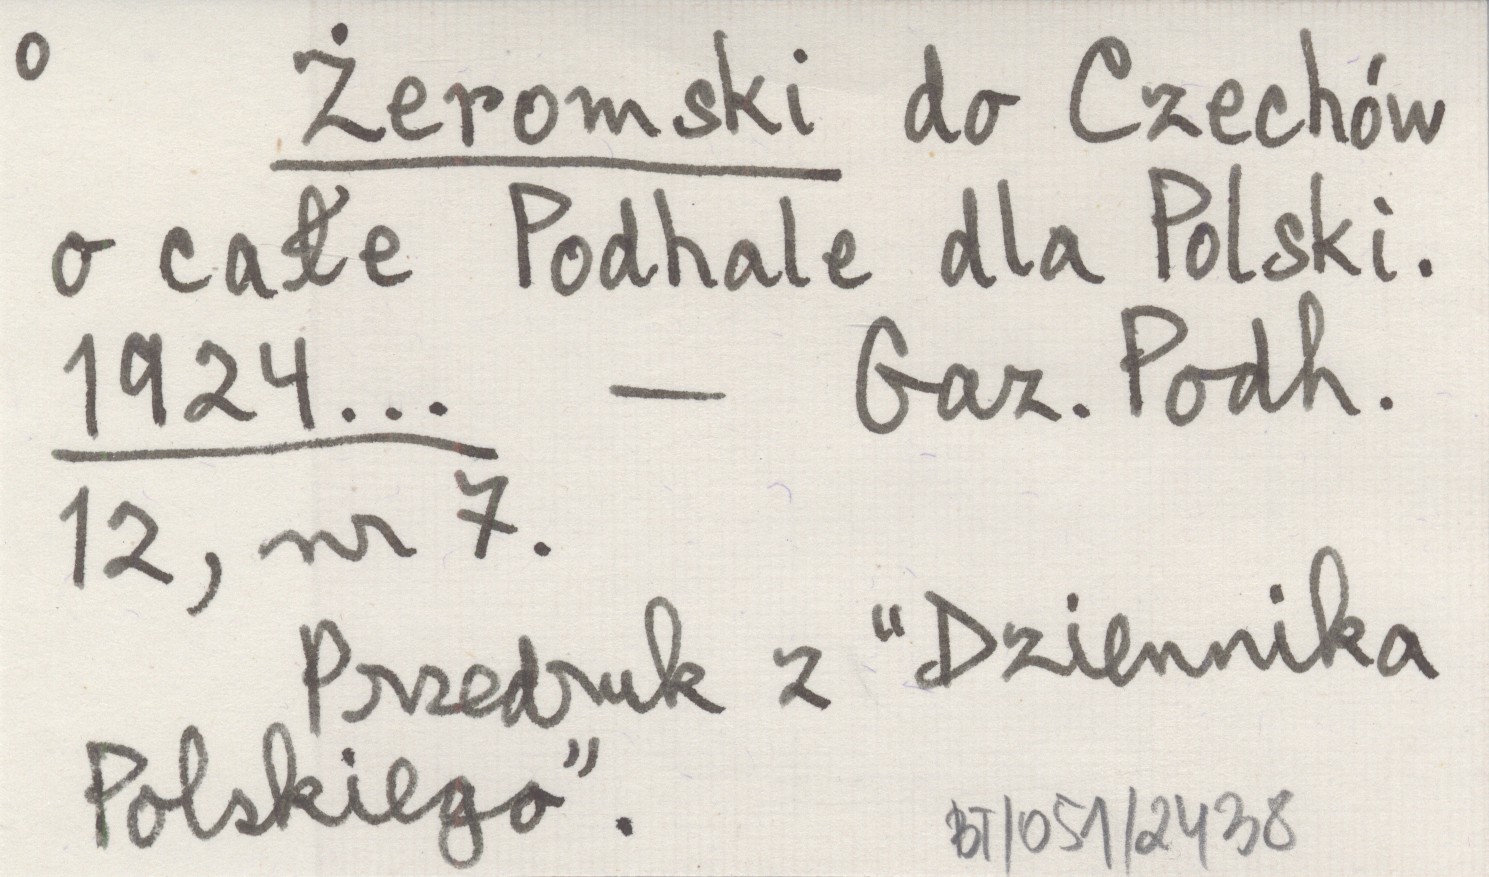 o Żeromski do Czechów
o całe Podhale dla Polski.
1924... — Gaz. Podh.
12, nr 7.
Przedruk z "Dziennika
Polskiego".
BT/051/2438